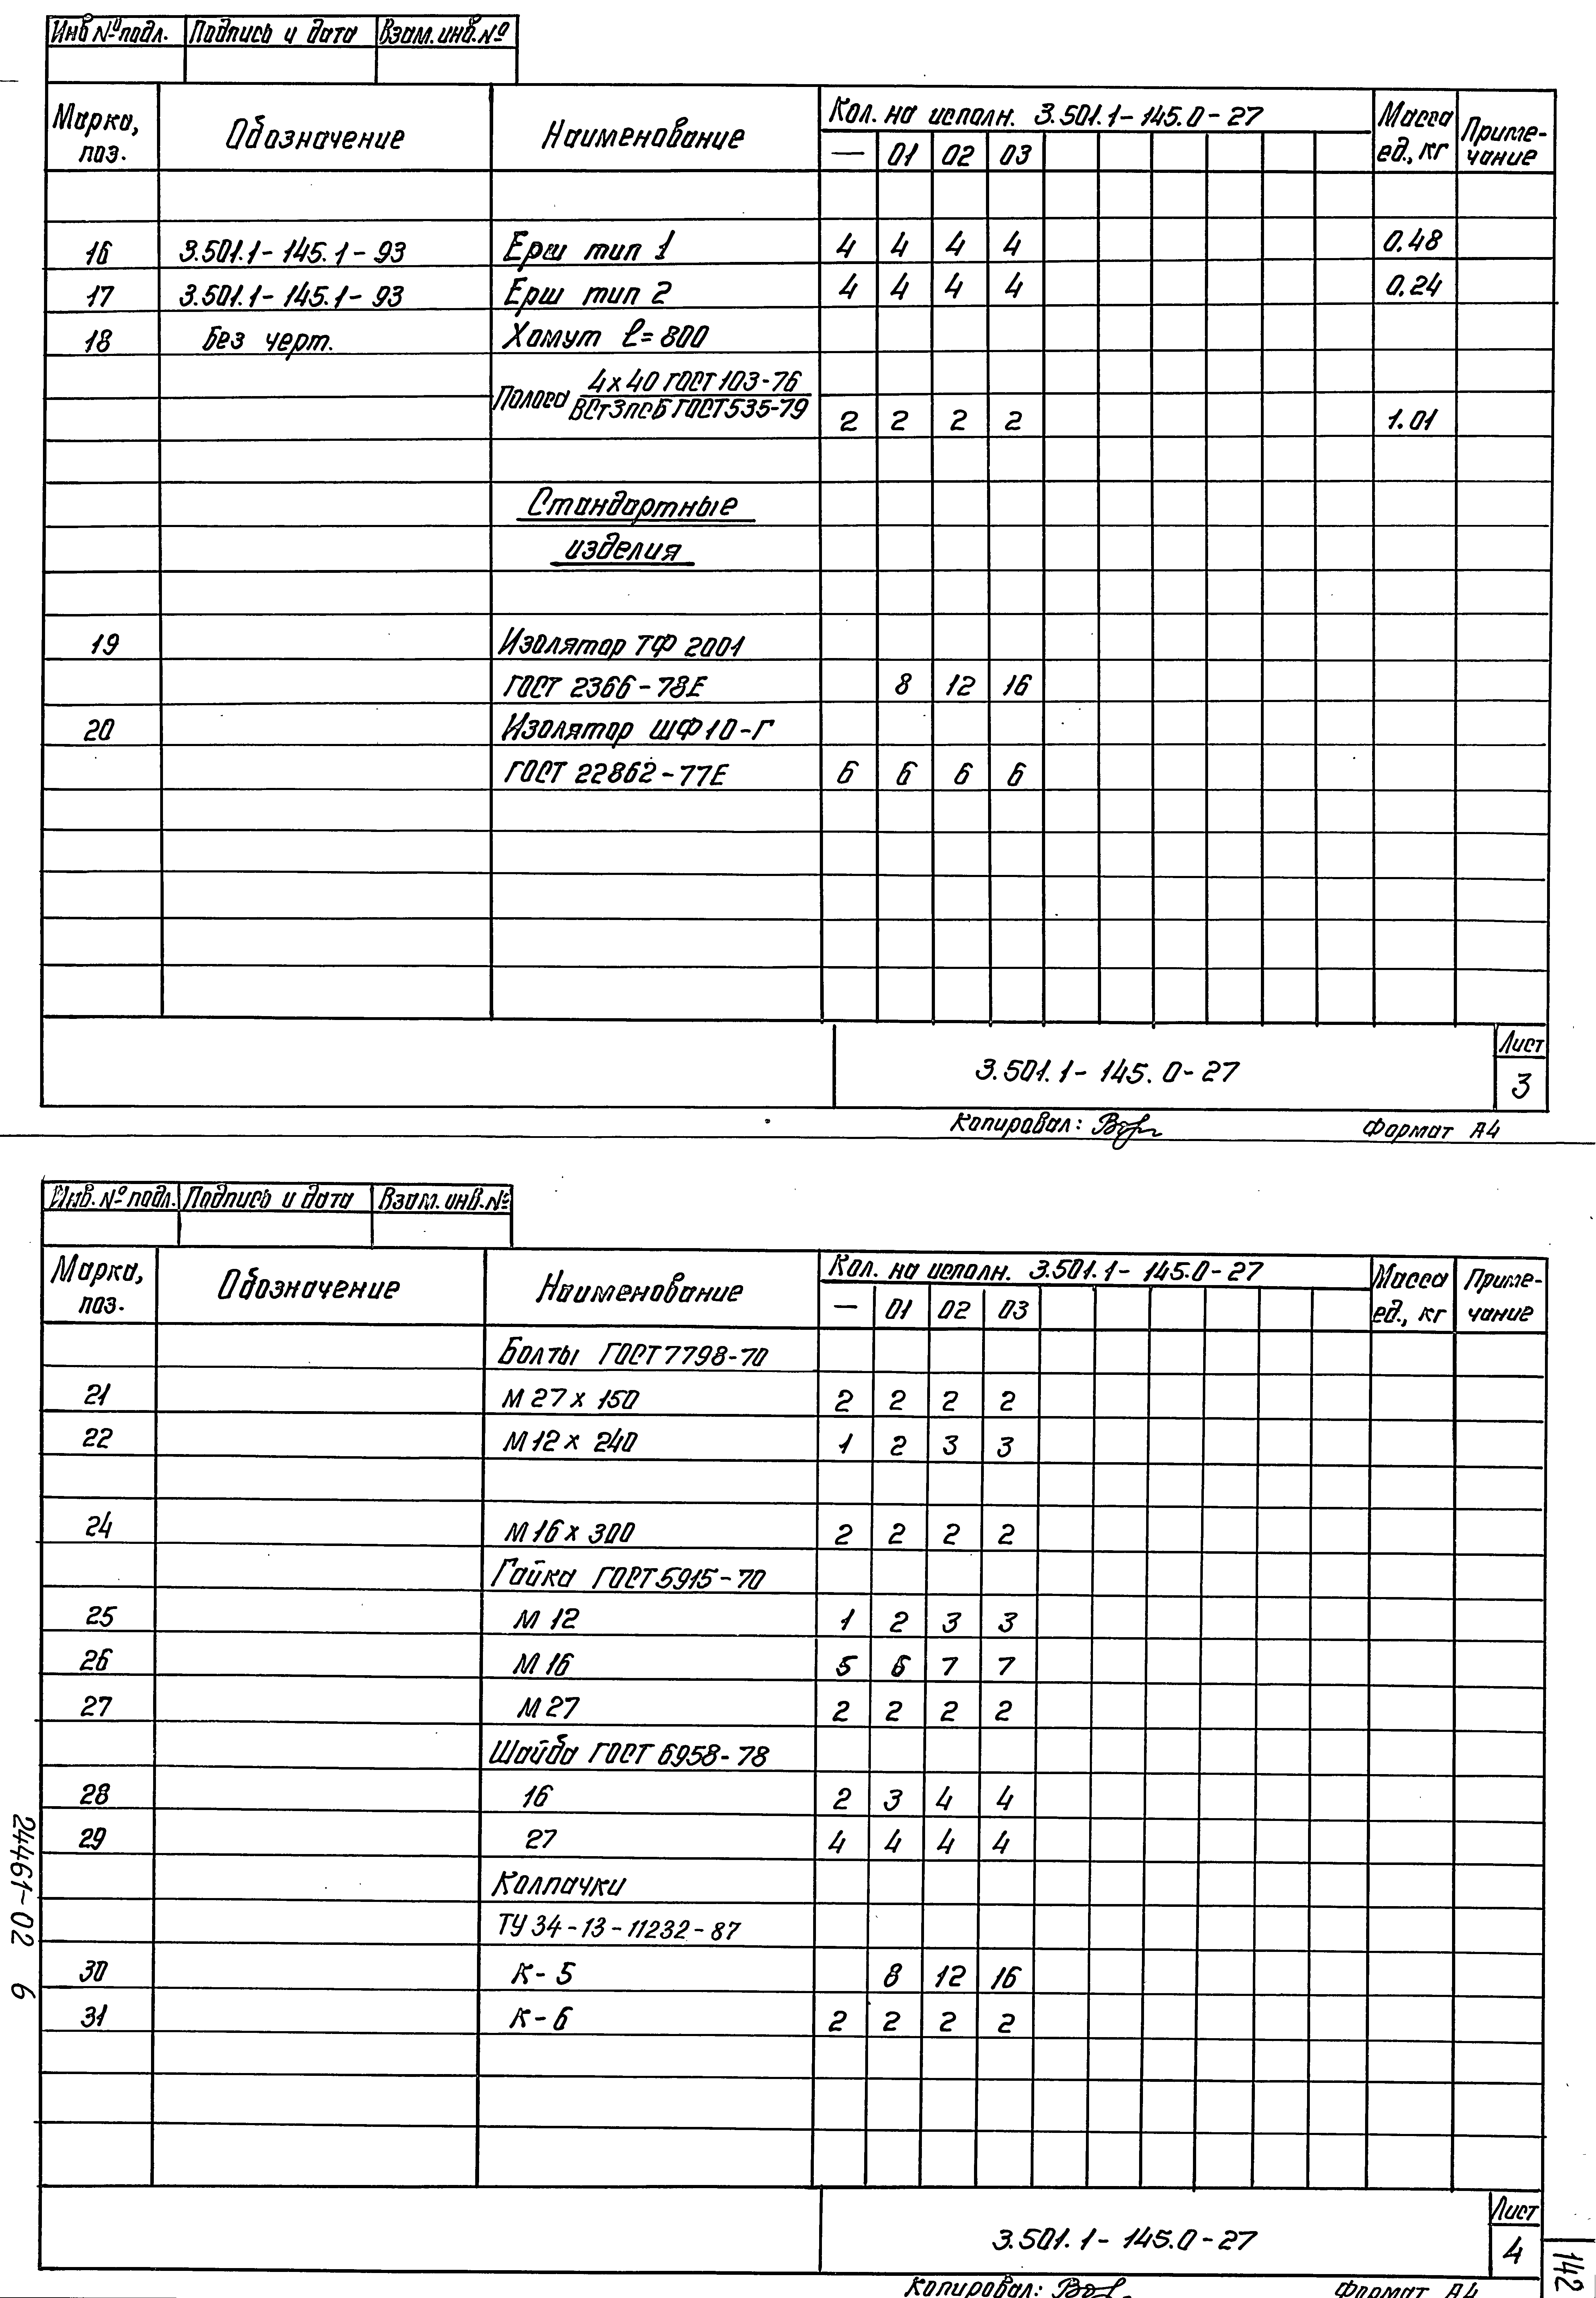 Инв № подл. Подпись и дата Взам. инв. №
Марка, поз. Обозначение Наименование Кол. на исполн. 3.501.1-145.0-27 Масса ед., кг Приме-чание
— 01 02 03
16 3.501.1-145.1-93 Ерш тип 1 4 4 4 4 0.48
17 3.501.1-145.1-93 Ерш тип 2 4 4 4 4 0.24
18 Без черт. Хомут ℓ=800
Полоса 4х40 ГОСТ 103-76
ВСт3псБ ГОСТ 535-79 2 2 2 2 1.01
Стандартные
изделия
19 Изолятор ТФ 2001
ГОСТ 2366-78Е 8 12 16
20 Изолятор ШФ 10-Г
ГОСТ 22862-77Е 6 6 6 6
3.501.1-145.0-27 Лист 3
Копировал: Формат А4
Инв. № подл. Подпись и дата Взам. инв. №
Марка, поз. Обозначение Наименование Кол. на исполн. 3.501.1-145.0-27 Масса ед., кг Приме-чание
— 01 02 03
Болты ГОСТ 7798-70
21 М 27 х 150 2 2 2 2
22 М 12 х 240 1 2 3 3
24 М 16 х 300 2 2 2 2
Гайка ГОСТ 5915-70
25 М 12 1 2 3 3
26 М 16 5 6 7 7
27 М 27 2 2 2 2
Шайба ГОСТ 6958-78
28 16 2 3 4 4
29 27 4 4 4 4
Колпачки
ТУ 34-13-11232-87
30 К-5 8 12 16
31 К-6 2 2 2 2
3.501.1-145.0-27 Лист 4
Копировал: Формат А4
24461-02 6
142